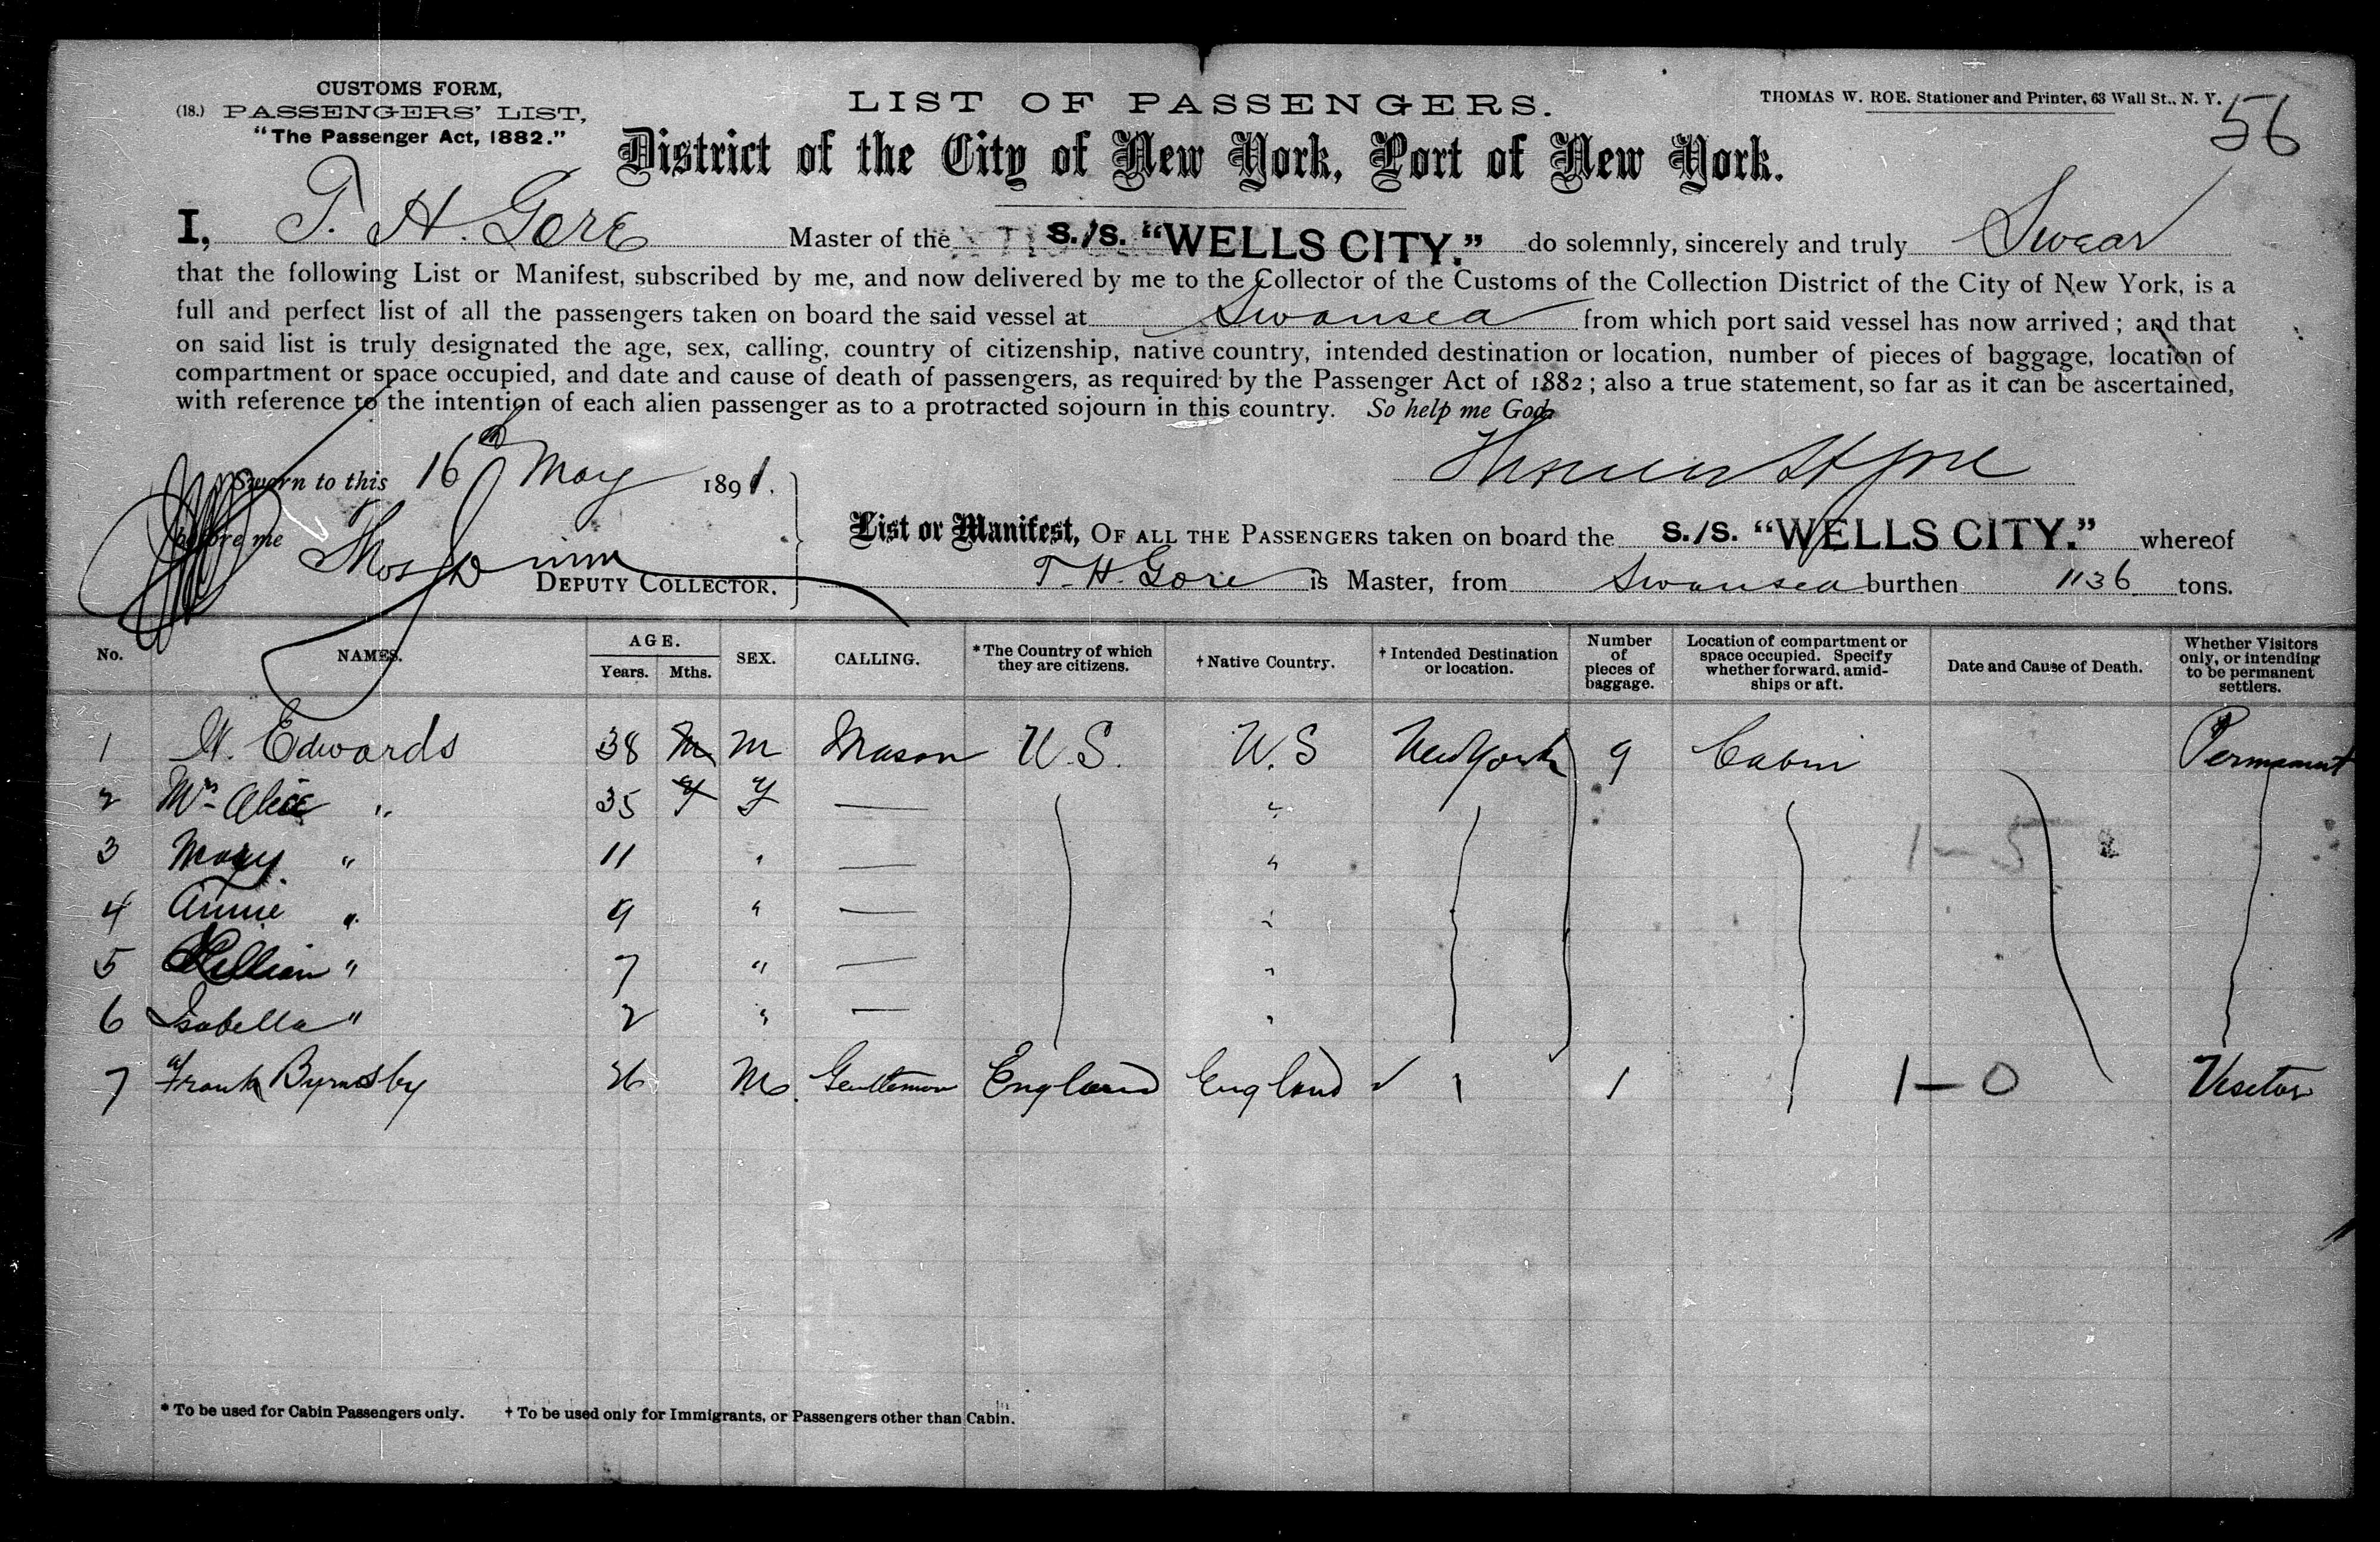 CUSTOMS FORM,
(18.) PASSENGERS' LIST,
"The Passenger Act, 1882."
LIST OF PASSENGERS.
THOMAS W. ROE. Stationer and Printer, 63 Wall St., N. Y.
56
District of the City of New York, Port of New York.
I, T. H. Gore Master of the S./S. "WELLS CITY." do solemnly, sincerely and truly Swear
that the following List or Manifest, subscribed by me, and now delivered by me to the Collector of the Customs of the Collection District of the City of New York, is a
full and perfect list of all the passengers taken on board the said vessel at Swansea from which port said vessel has now arrived; and that
on said list is truly designated the age, sex, calling, country of citizenship, native country, intended destination or location, number of pieces of baggage, location of
compartment or space occupied, and date and cause of death of passengers, as required by the Passenger Act of 1882; also a true statement, so far as it can be ascertained,
with reference to the intention of each alien passenger as to a protracted sojourn in this country. So help me God.
Sworn to this 16th May 1891.
before me Thos
DEPUTY COLLECTOR.
List or Manifest, OF ALL THE PASSENGERS taken on board the S./S. "WELLS CITY." whereof
T. H. Gore is Master, from Swansea burthen 1136 tons.
No. NAMES. AGE. Years. Mths. SEX. CALLING. *The Country of which they are citizens. †Native Country. †Intended Destination or location. Number of pieces of baggage. Location of compartment or space occupied. Specify whether forward, amidships or aft. Date and Cause of Death. Whether Visitors only, or intending to be permanent settlers.
1 W. Edwards 38 M M Mason U.S. U.S New York 9 Cabin Permanent
2 Mrs Alice " 35 F F — "
3 Mary " 11 " — " 1-5
4 Annie " 9 " — "
5 Lillian " 7 " — "
6 Isabella " 2 " — "
7 Frank Byrnsby 26 M. Gentleman England England 1 1-0 Visitor
* To be used for Cabin Passengers only. † To be used only for Immigrants, or Passengers other than Cabin.